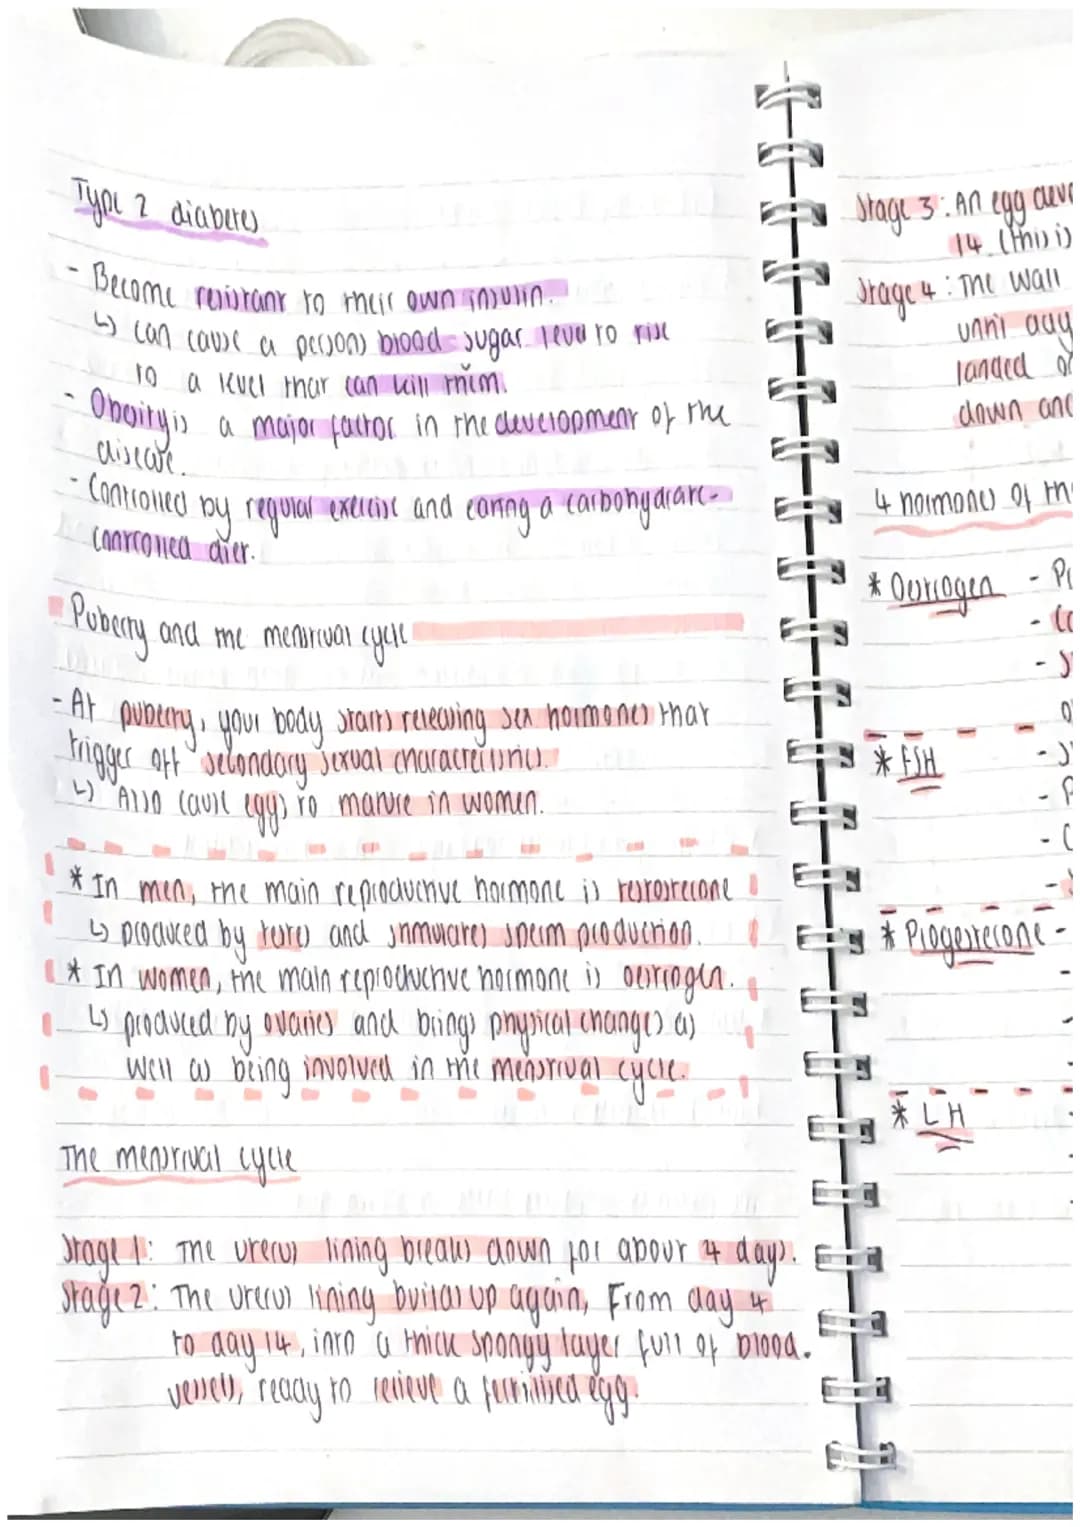 Type 2 diabetes
- Become resistant to their own insulin.
↳ can cause a persons blood sugar level to rise
to a level that can kill them.
- Obesity is a major factor in the development of the
disease.
- Controlled by regular exercise and eating a carbohydrate-
controlled diet.
Puberty and the menstrual cycle
- At puberty, your body starts releasing sex hormones that
trigger off secondary sexual characteristics.
↳ Also cause eggs to mature in women.
* In men, the main reproductive hormone is testosterone
↳ produced by testes and stimulates sperm production.
* In women, the main reproductive hormone is oestrogen.
↳ produced by ovaries and brings physical changes as
well as being involved in the menstrual cycle.
The menstrual cycle
Stage 1: The uterus lining breaks down for about 4 days.
Stage 2: The uterus lining builds up again, From day 4
to day 14, into a thick spongy layer full of blood.
vessels, ready to recieve a fertilised egg.
Stage 3: An egg deve
14. (this is
Stage 4: The wall
until day
landed o
down and
4 hormones of th
* Oestrogen - P
- Co
- S
o
* FSH - S
- P
- C
* Progesterone -
* LH